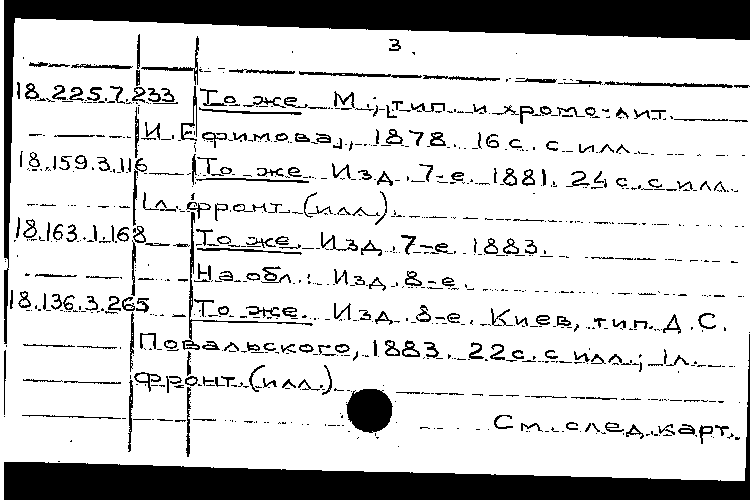 3.
18.225.7.233 То же. М., тип. и хромо-лит.
И. Ефимова, 1878. 16 с. с илл.
18.159.3.116 То же. Изд. 7-е. 1881. 24 с. с илл.
1 л. фронт. (илл.).
18.163.1.168 То же. Изд. 7-е. 1883.
На обл.: Изд. 8-е.
18.136.3.265 То же. Изд. 8-е. Киев, тип. Д. С.
Повальского, 1883. 22 с. с илл.; 1 л.
фронт. (илл.)
См. след. карт.